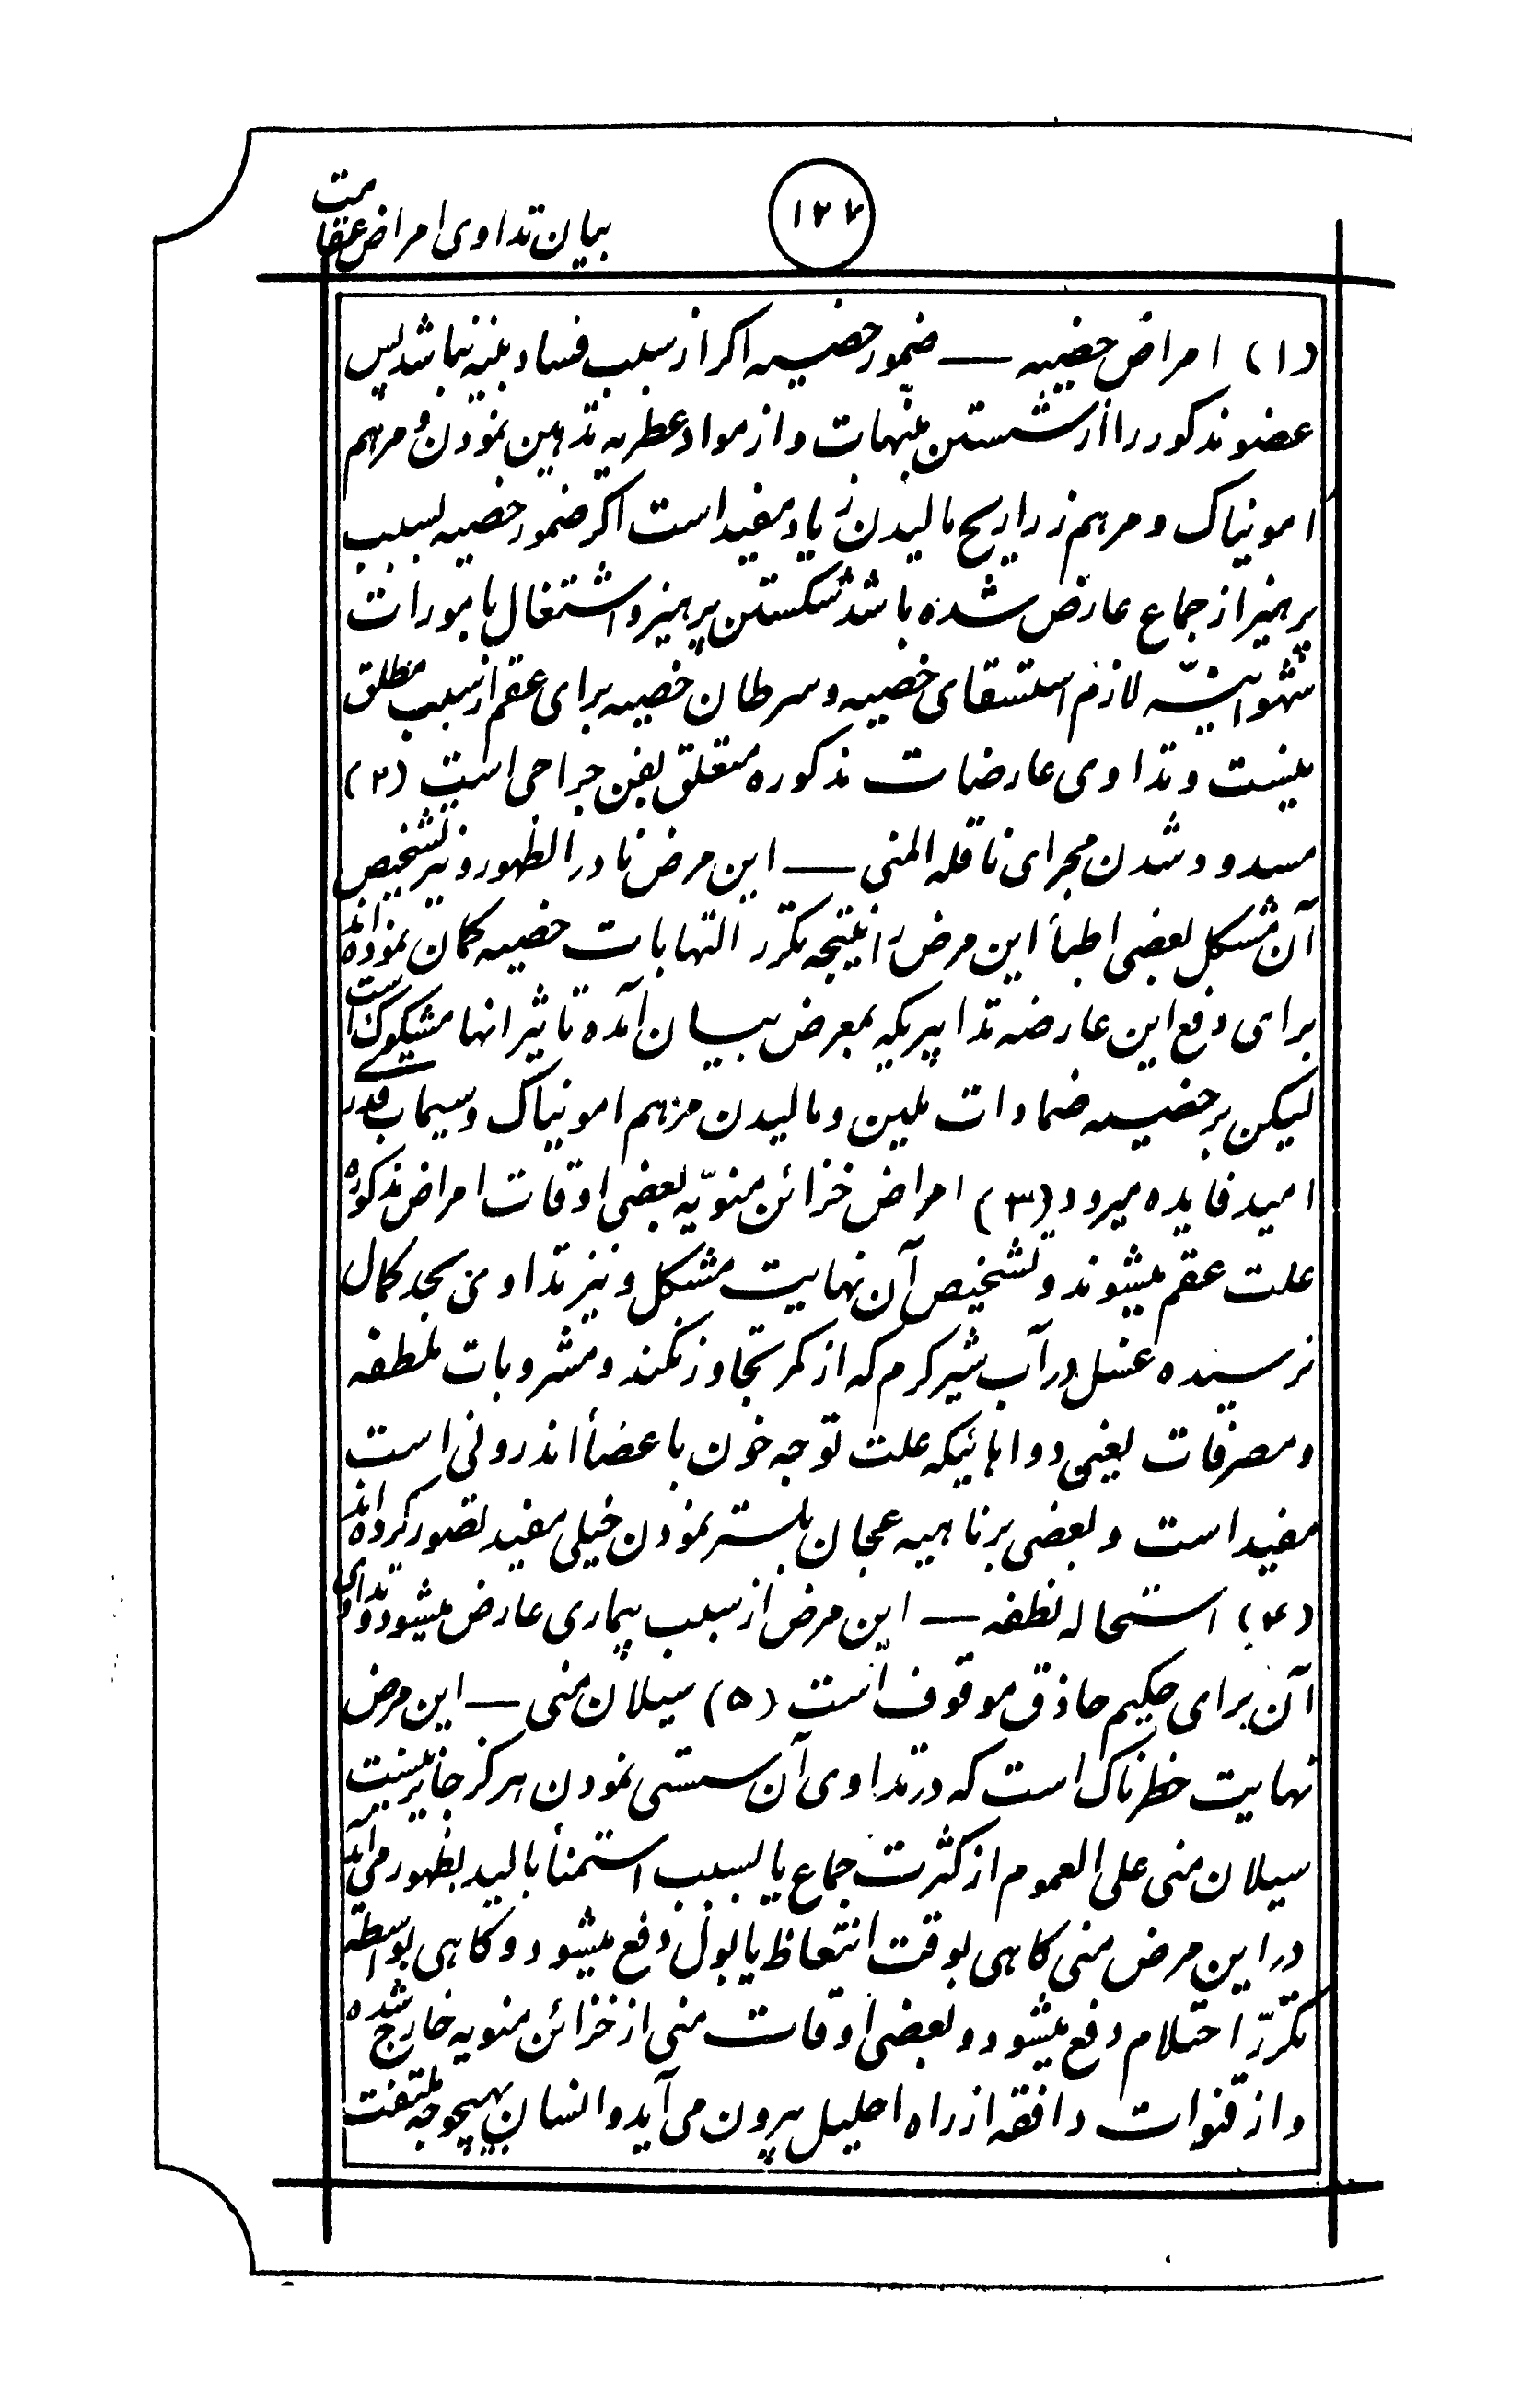 ۱۲۷
بیان تداوی امراض عقامت
(۱) امراض خصیه — ضمور خصیه اکر از سبب فساد بنیه نباشد پس
عضو مذکور را از شستن منبهات و از مواد عطریه تدهین نمودن و مرهم
امونیاک و مرهم زراریح مالیدن زیاد مفید است اکر ضمور خصیه بسبب
پرهیز از جماع عارض شده باشد شکستن پرهیز و اشتغال بامورات
شهوانیّه لازم استسقای خصیه و سرطان خصیه برای عقم از سبب مطلق
نیست و تداوی عارضات مذکوره متعلق بفن جراحی است (۲)
مسدود شدن مجرای ناقله المنی — این مرض نادر الظهور و نیز تشخیص
آن مشکل بعضی اطبأ این مرض را نتیجه تکرر التهابات خصیه کمان نموده‌اند
برای دفع این عارضه تدابیریکه بمعرض بیان آمده تاثیر انها مشکوک است
لیکن بر خصیه ضمادات ملین و مالیدن مرهم امونیاک و سیماب قدرے
امید فایده میرود (۳) امراض خزائن منویّه بعضی اوقات امراض مذکوره
علت عقم میشوند و تشخیص آن نهایت مشکل و نیز تداوی بحد کمال
نرسیده غسل در آب شیر کرم که از کمر تجاوز نکند و مشروبات ملطفه
ومصرفات یعنی دواهائیکه علت توجه خون باعضأ اندرونی است
مفید است و بعضی بر ناهیه عجان بلستر نمودن خیلی مفید تصور کرده‌اند
(۴) استحاله نطفه — این مرض از سبب بیماری عارض میشود و تداوی
آن برای حکیم حاذق موقوف است (۵) سیلان منی — این مرض
نهایت خطرناک است که در تداوی آن سستی نمودن هرکز جایز نیست
سیلان منی علی العموم از کثرت جماع یا بسبب استمنأ بالید بظهور می‌آید
در این مرض منی کاهی بوقت انتعاظ یا بول دفع میشود و کاهی بواسطه
تکررّ احتلام دفع میشود و بعضی اوقات منی از خزائن منویه خارج شده
و از قنوات دافقه از راه احلیل بیرون می‌آید و انسان بهیچوجه ملتفت